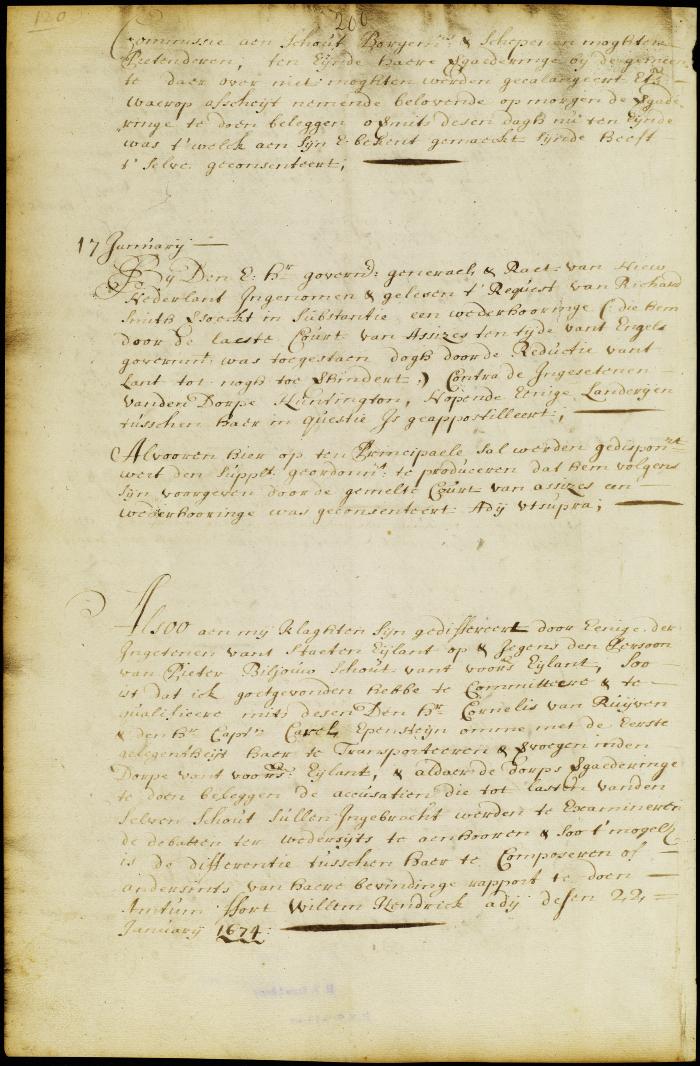 120
200
Commissie aen Schout Borgemrs: & Schepenen moghten
Pretenderen, ten Eynde haere vgaederinge by de gemeen
te daer over niet moghten werden gecalangeert Etca
waerop afscheyt nemende belovende op morgen de vgade
ringe te doen beleggen omits desen dagh nu ten Eynde
was t'welck aen Syn E: bekent gemaeckt synde heeft
t' selve geconsenteert;
17 January
By Den E: hr governr: generael, & Raet van Nieuw
Nederlant Ingenomen & gelesen t' Request van Richard
Smith vsoeckt in substantie een wederhooringe (: die hem
door de laeste Court van Assizes ten tyde vant Engels
governmt: was toegestaen dogh door de Reductie vant
Lant tot nogh toe vhindert :) Contra de Ingesetenen
vanden Dorpe Huntington, nopende Eenige Landeryen
tusschen haer in questie Is geappostilleert;
Alvooren hier op ten Principaele sal werden gedisponrt
wert den Supplt: geordonrt: te produceren dat hem volgens
syn voorgeven door de gemelte Court van assizes een
wederhooringe was geconsenteert Ady utsupra;
Alsoo aen my Klaghten syn gediffereert door Eenige der
Ingesetenen vant Staeten Eylant op & Jegens den Persoon
van Pieter Biljouw Schout vant voors: Eylant, Soo
ist dat ick goetgevonden hebbe te Committeere & te
qualificere mits desen Den hr: Cornelis van Ruyven
& den hr Captn Carel Epensteyn omme met de Eerste
gelegentheyt haer te Transporteeren & vvoegen inden
Dorpe vant voors: Eylant, & aldaer de dorps vgaederinge
te doen beleggen de accusatien die tot laste vanden
selven Schout sullen Ingebracht werden te Examineren
de debatten ter wedersyts te aenhooren & soo t' mogelk
is de differentie tusschen haer te Composeren of
andersints van haere bevindinge rapport te doen
Actum ffort Willem Hendrick ady desen 22
January 1674: